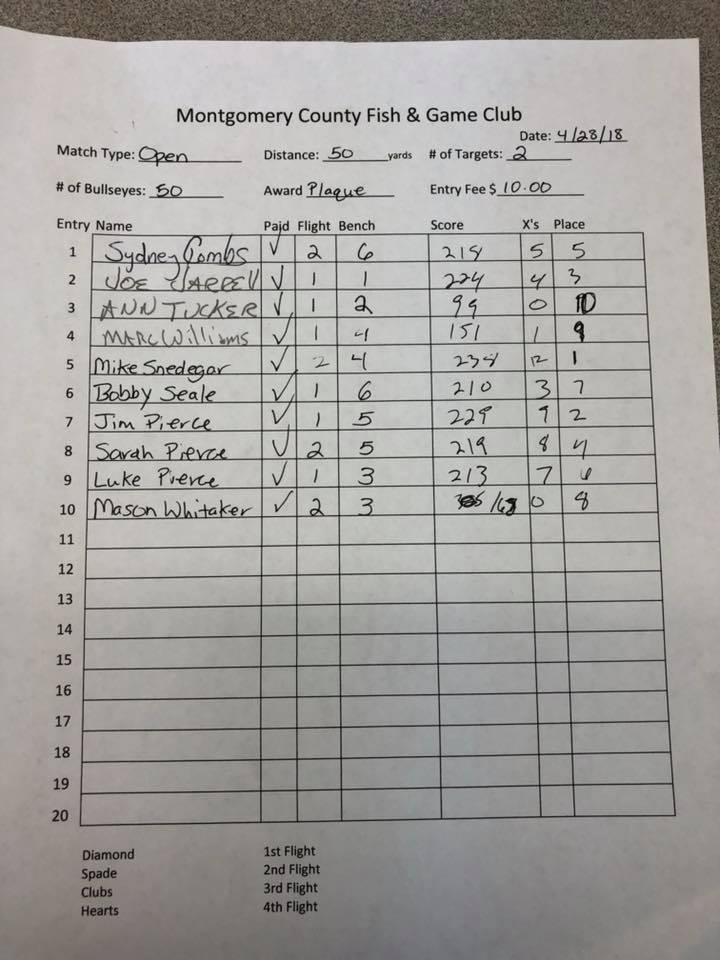 Montgomery County Fish & Game Club
Date: 4/28/18
Match Type: Open Distance: 50 yards # of Targets: 2
# of Bullseyes: 50 Award Plaque Entry Fee $ 10.00
Entry Name Paid Flight Bench Score X's Place
1 Sydney Combs ✓ 2 6 218 5 5
2 JOE HARRELL ✓ 1 1 224 4 3
3 ANN TUCKER ✓ 1 2 99 0 10
4 MARC Williams ✓ 1 4 151 1 9
5 Mike Snedegar ✓ 2 4 238 12 1
6 Bobby Seale ✓ 1 6 210 3 7
7 Jim Pierce ✓ 1 5 229 9 2
8 Sarah Pierce ✓ 2 5 219 8 4
9 Luke Pierce ✓ 1 3 213 7 6
10 Mason Whitaker ✓ 2 3 0 8
11
12
13
14
15
16
17
18
19
20
Diamond 1st Flight
Spade 2nd Flight
Clubs 3rd Flight
Hearts 4th Flight